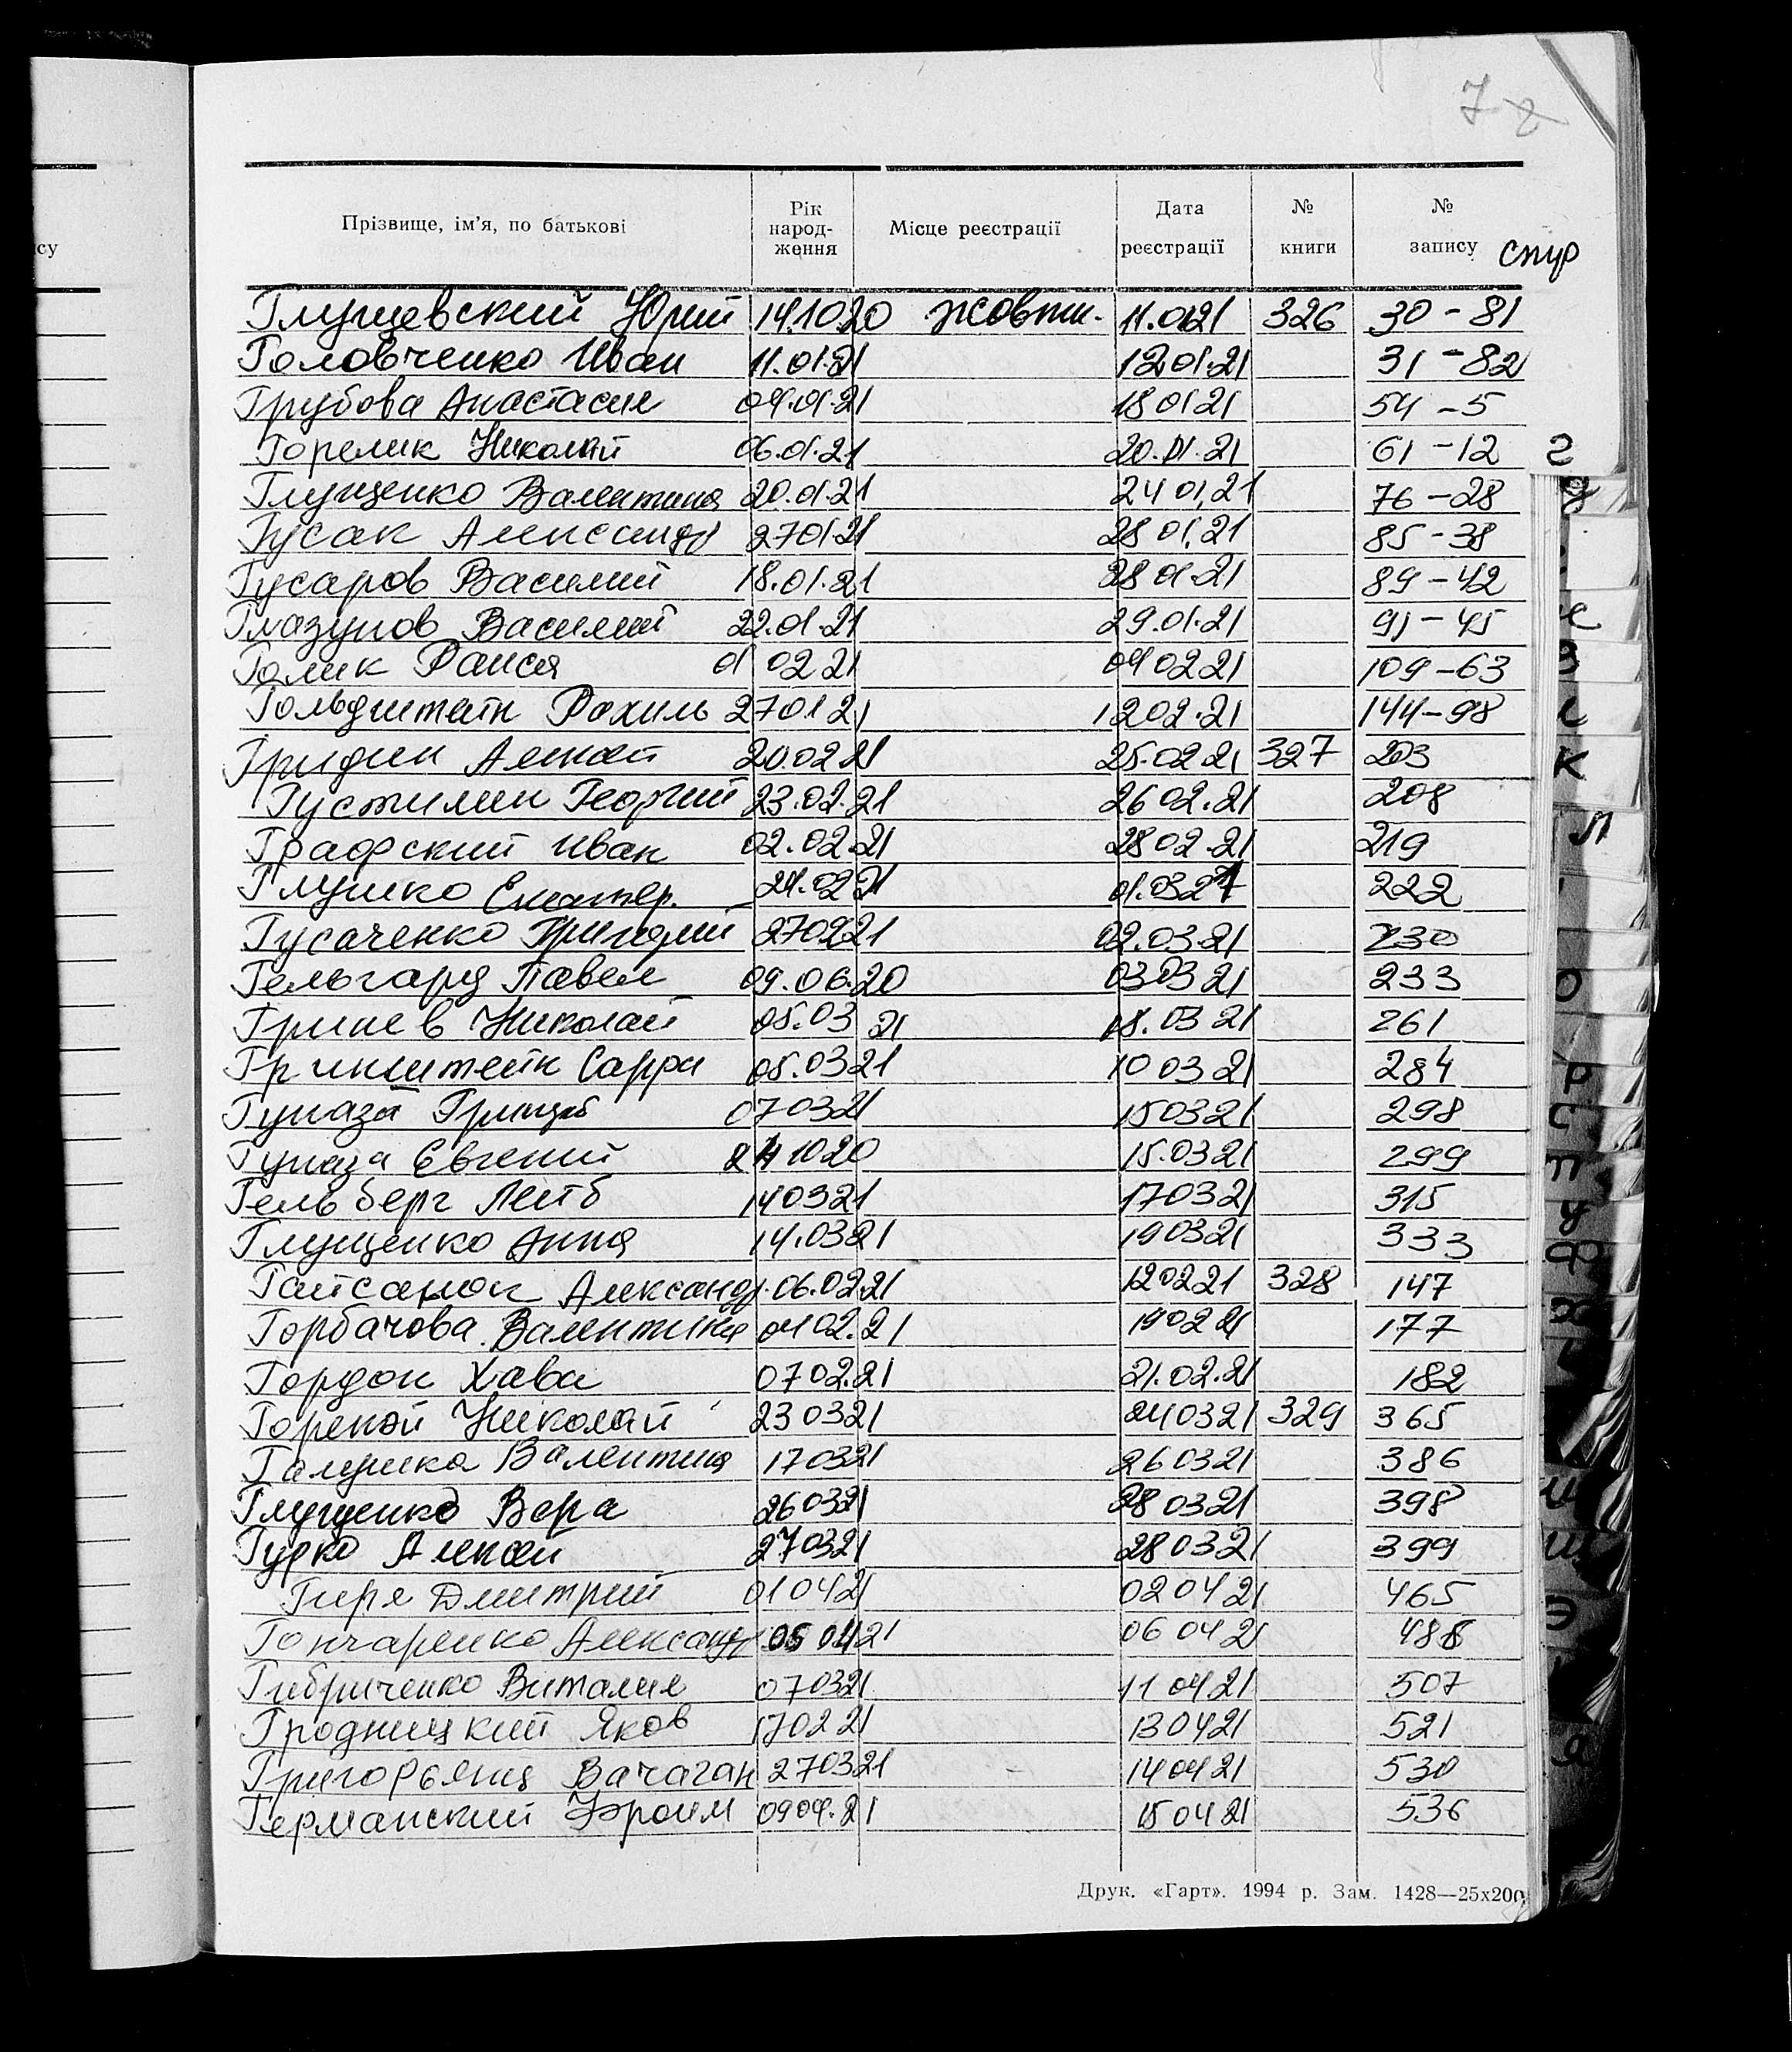 7
су
Прізвище, ім'я, по батькові | Рік народ- ження | Місце реєстрації | Дата реєстрації | № книги | № запису | спр
Глущевский Юрий 14.10.20 жовтн. 11.01.21 326 30 - 81
Головченко Иван 11.01.21 12.01.21 31 - 82
Грубова Анастасия 04.01.21 18 01 21 54 - 5
Горелик Николай 06.01.21 20.01.21 61 - 12
Глущенко Валентина 20.01.21 24 01.21 76 - 28
Гусак Александр 27 01.21 28 01.21 85 - 38
Гусаров Василий 18.01.21 28 01.21 89 - 42
Глазунов Василий 22.01.21 29.01.21 91 - 45
Голик Раиса 01 02 21 04 02 21 109 - 63
Гольдштейн Рахиль 27 01 21 12 02.21 144 - 98
Гридин Алексей 20.02 21 25.02 21 327 203
Георгий 23.02.21 26 02.21 208
Графский Иван 02.02.21 28 02.21 219
Глушко Екатер. 24.02 21 01.03 21 222
Гусаченко Григорий 27 02 21 02.03.21 230
Гельгард Павел 09.06.20 03 03 21 233
Гринев Николай 05.03 21 18.03 21 261
Гринштейн Сарра 05.03 21 10 03 21 284
07 03 21 15 03 21 298
Евгений 10 20 15.03 21 299
Гельберг Лейб 14 03 21 17 03 21 315
Глущенко Анна 14.03 21 19 03 21 333
Гайсанюк Александр. 06.02.21 12 02 21 328 147
Горбачова Валентина 04 02.21 19 02 21 177
Гордон Хава 07 02.21 21.02.21 182
Николай 23 03 21 24 03 21 329 365
Галушка Валентина 17 03 21 26 03 21 386
Глущенко Вера 26 03 21 28 03 21 398
Гурко Алексей 27 03 21 28 03 21 399
Гиря Дмитрий 01 04 21 02 04 21 465
Гончаренко Александр 05 04 21 06 04 21 488
Гибриченко Виталия 07 03 21 11 04 21 507
Гродницкий Яков 17 02 21 13 04 21 521
Григорьянц Вачаган 27 03 21 14 04 21 530
Германский Эфроим 09 04.21 15 04 21 536
Друк. «Гарт». 1994 р. Зам. 1428—25х200
г
д
К
Л
О
Р
С
Т
У
Ф
Х
Ш
Щ
Э
Я